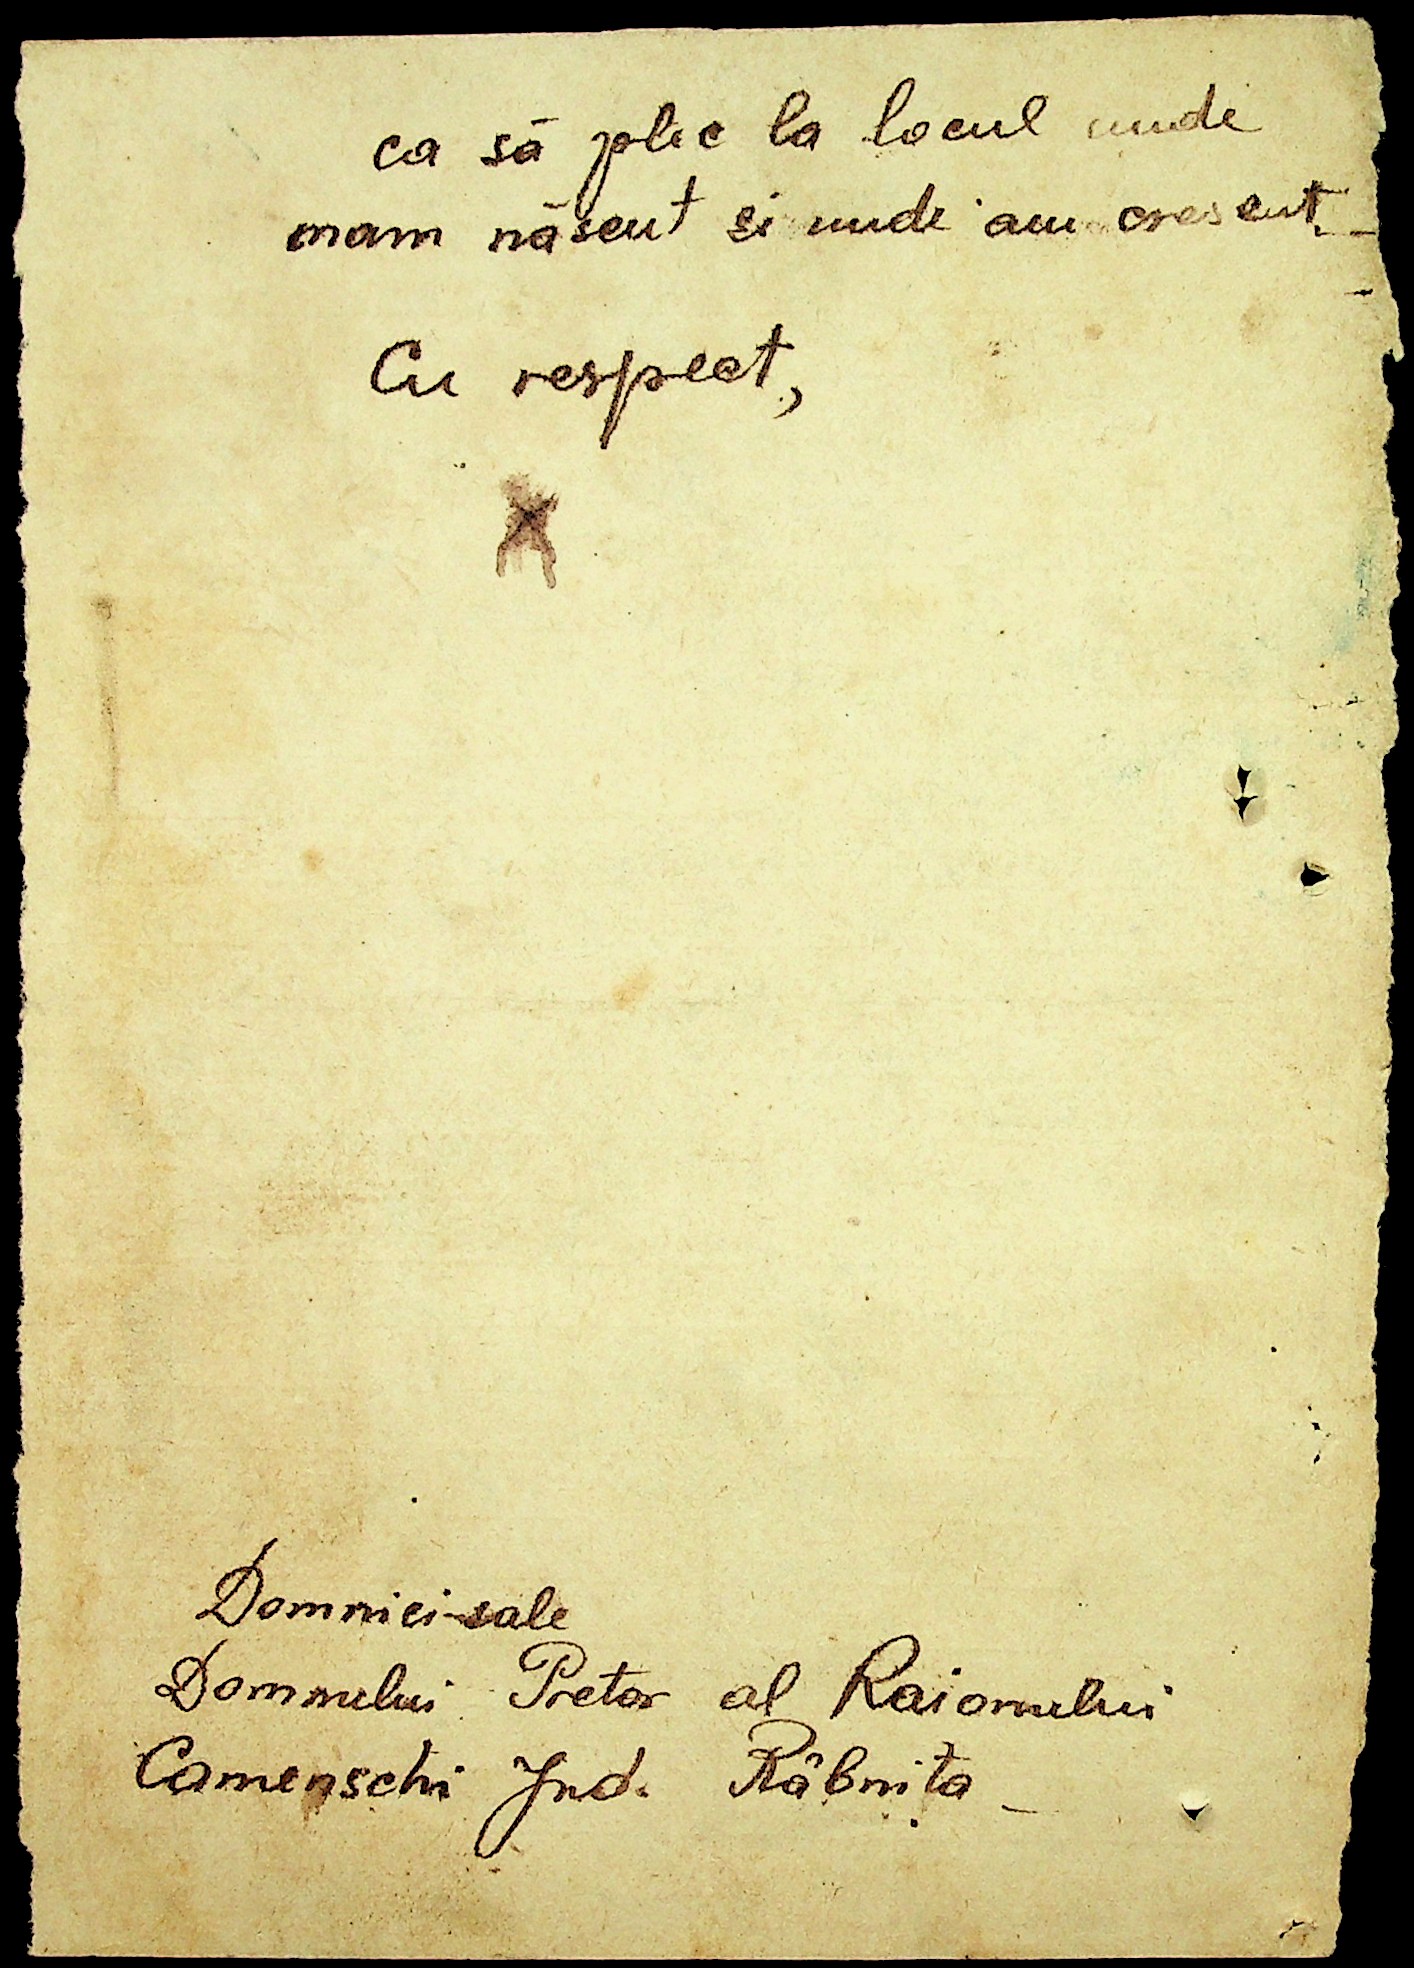 ca să plec la locul unde
mam născut si unde am crescut.
Cu respect,
X
Domniei-sale
Domnului Pretor al Raionului
Camenschi Jud. Râbnita